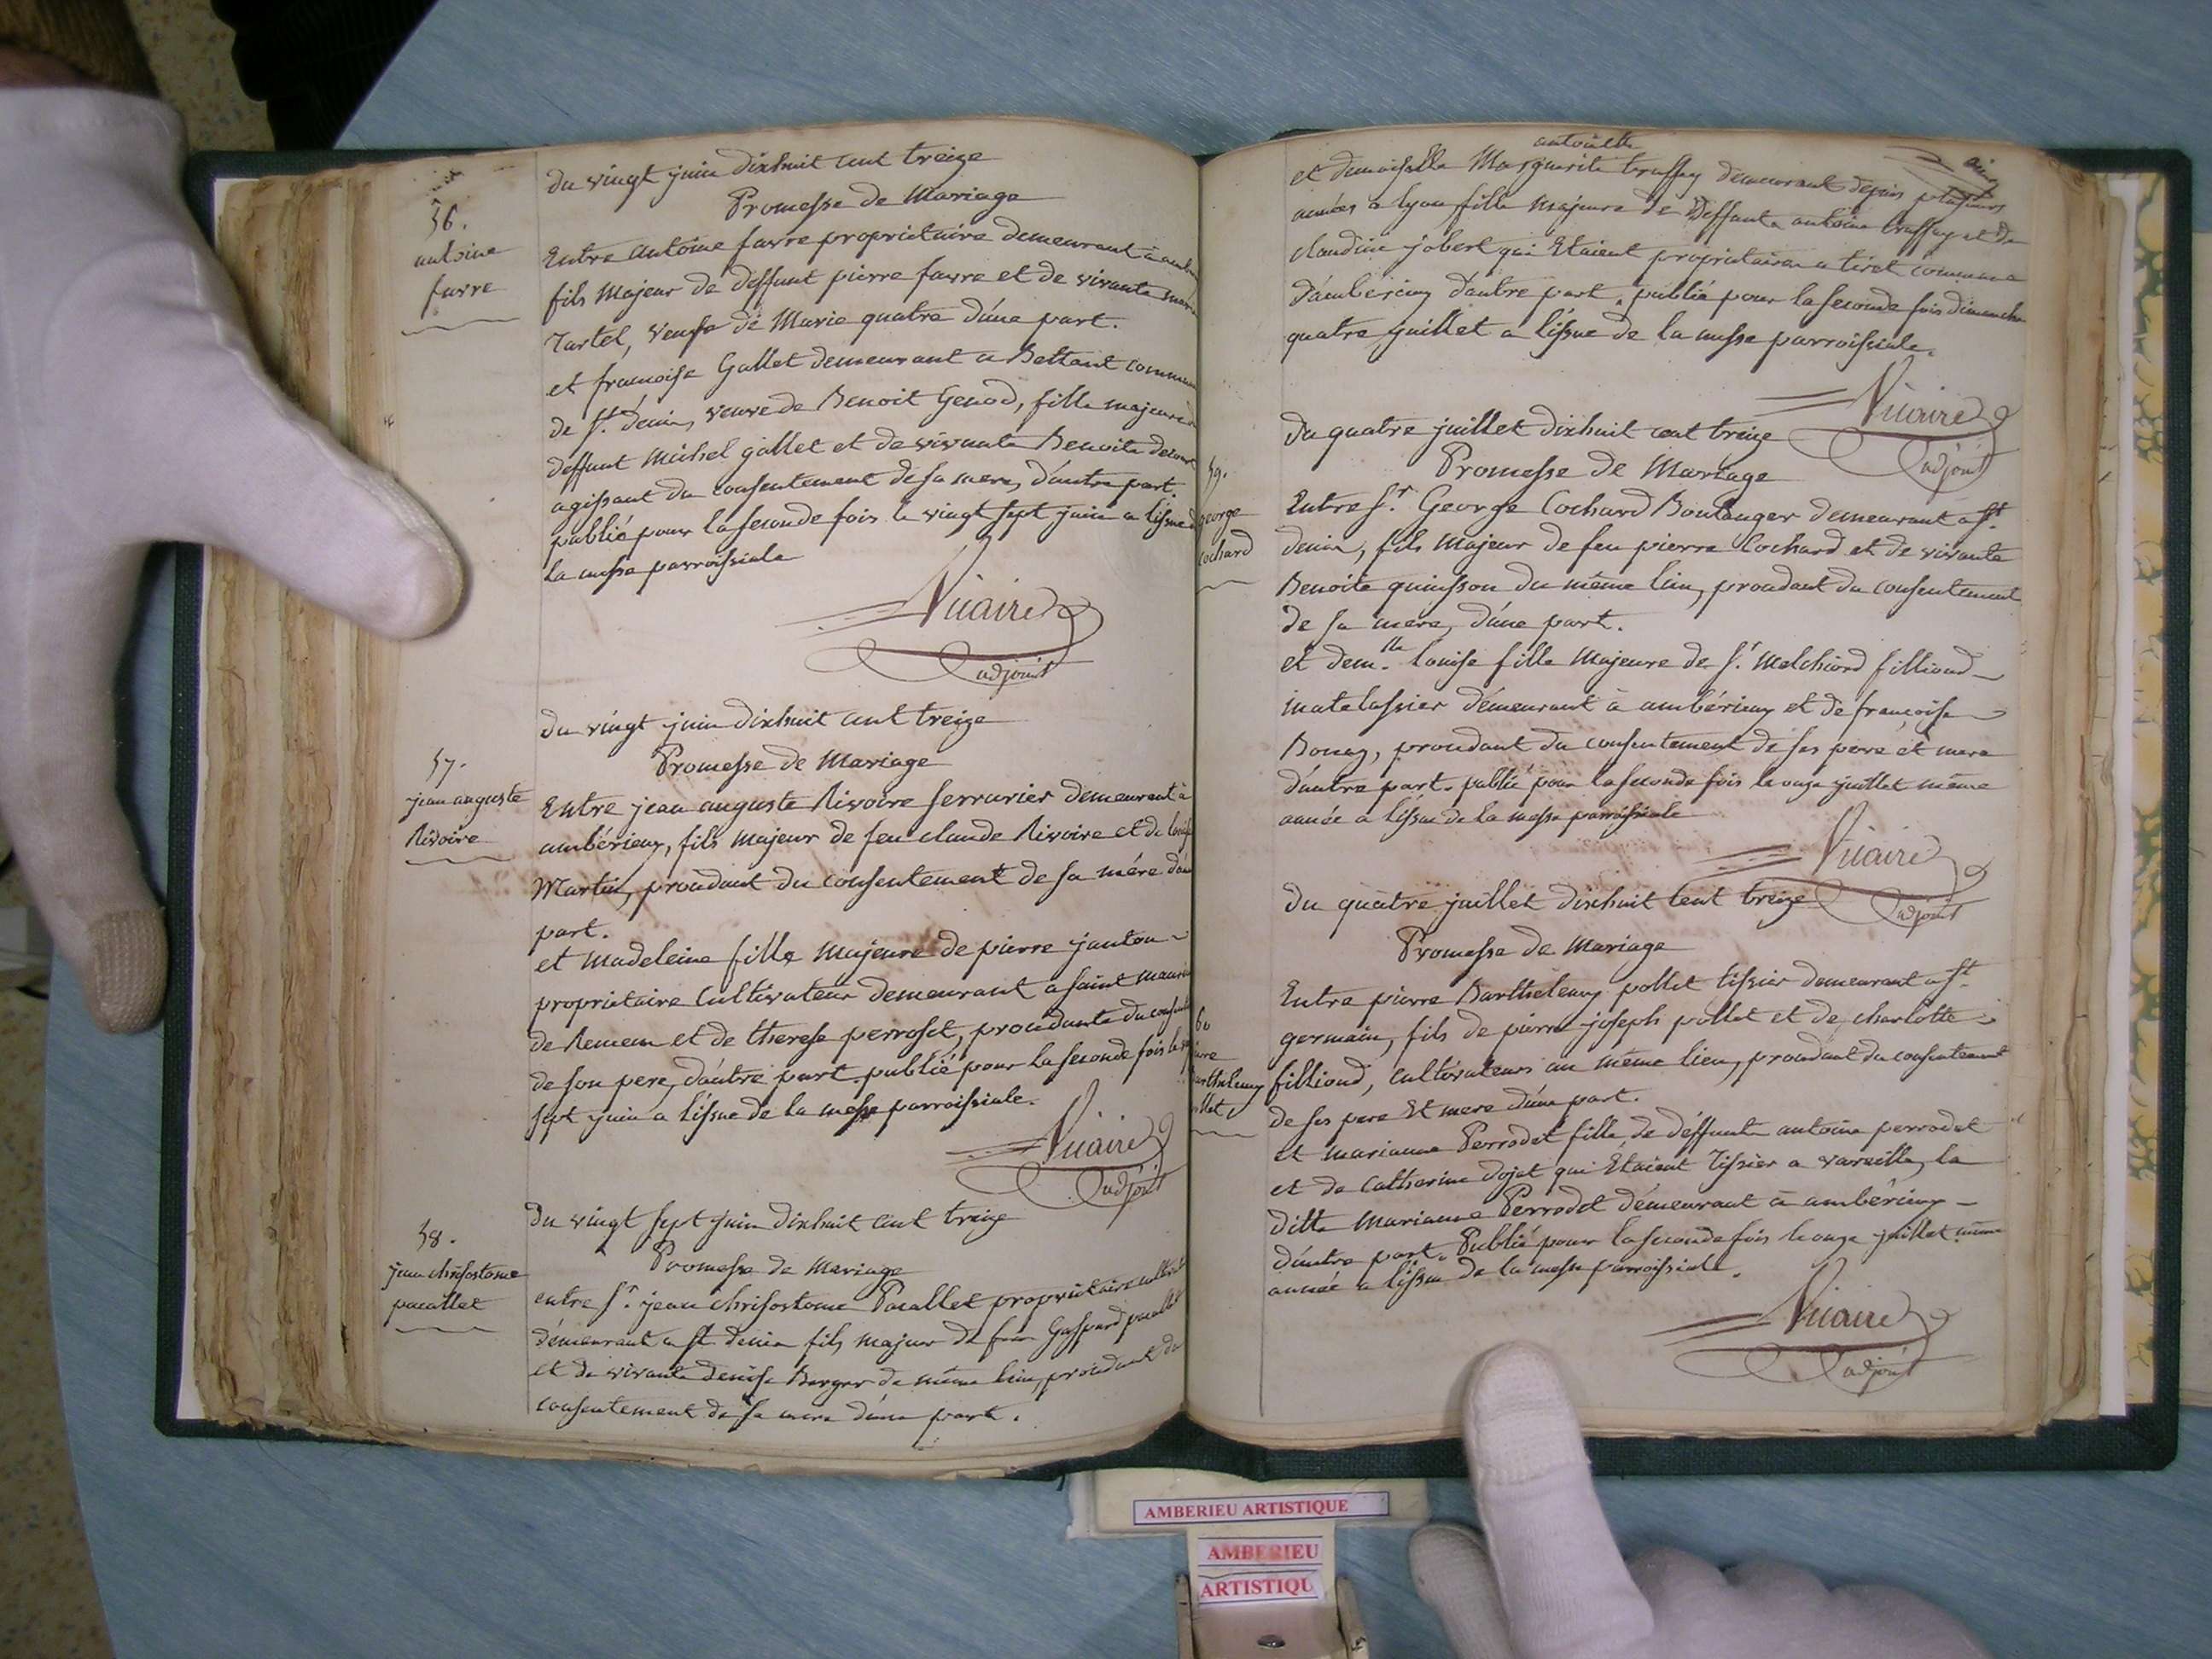 du vingt juin dixhuit cent treize
Promesse de Mariage
56.
antoine
favre
Entre antoine favre propriétaire demeurant à
fils Majeur de deffunt pierre favre et de vivante
Tartel, veufse de Marie quatre d'une part.
et francoise Gallet demeurant a Bettant commune
de St. denis, veuve de Benoit Genod, fille majeure de
deffunt Michel gallet et de vivante Benoite
agissant du consentement de sa mere, d'autre part.
publié pour la seconde fois le vingt sept juin a l'issue de
la messe parroissiale
Vicaire
adjoint
du vingt juin dixhuit cent treize
Promesse de Mariage
57.
jean auguste
Rivoire
Entre jean auguste Rivoire serrurier demeurant à
ambérieux, fils majeur de feu claude Rivoire et de
Martin, procédant du consentement de sa mére d'une
part.
et Madeleine fille majeure de pierre janton
propriétaire Cultivateur demeurant a saint maurice
de Remem et de therese perroset, procedante du
de son pere, d'autre part. publié pour la seconde fois le
sept juin a l'issue de la messe parroissiale.
Vicaire
adjoint
du vingt sept juin dixhuit cent treize
Promesse de Mariage
58.
jean chrisostome
pacallet
entre Sr. jean chrisostome Pacallet propriétaire
démeurant a St. denis fils majeur de feu Gaspard pacallet
et de vivante denise Berger du même lieu, procédant du
consentement de sa mere d'une part.
antoinette
et demoiselle Marguerite truffey demeurant depuis plusieurs
années a lyon fille majeure de Deffunts antoine truffey et de
claudine jobert qui Etaient proprietaires a tiret commune
d'amberieux d'autre part, publié pour la seconde fois dimanche
quatre juillet a l'issue de la messe parroissiale.
Vicaire
adjoint
du quatre juillet dixhuit cent treize
Promesse de Mariage
59.
george
Cochard
Entre Sr. George Cochard Boulanger demeurant a St.
denis, fils majeur de feu pierre Cochard et de vivante
Benoite quinsson du même lieu, procédant du consentement
de sa mere, d'une part.
et demlle louise fille majeure de Sr. Melchiord filliond
matelassier démeurant à ambérieux et de françoise
Bonaz, procédant du consentement de ses pere et mere
d'autre part. publié pour la seconde fois le onze juillet même
année a l'issue de la messe parroissiale
Vicaire
adjoint
du quatre juillet dixhuit cent treize
Promesse de Mariage
60
Entre pierre Barthelemy pollet tissier demeurant a St.
germain, fils de pierre joseph pollet et de charlotte
filliond, cultivateurs au même lieu, procédant du consentement
de ses pere Et mere d'une part.
et marianne Perrodet fille de déffunts antoine perrodet
et de Catherine dojat qui Etaient tissier a vareille, la
ditte Marianne Perrodet démeurant à ambérieux
d'autre part. Publié pour la seconde fois le onze juillet même
année a l'issue de la messe parroissiale.
Vicaire
adjoint
AMBERIEU ARTISTIQUE
AMBERIEU
ARTISTIQU